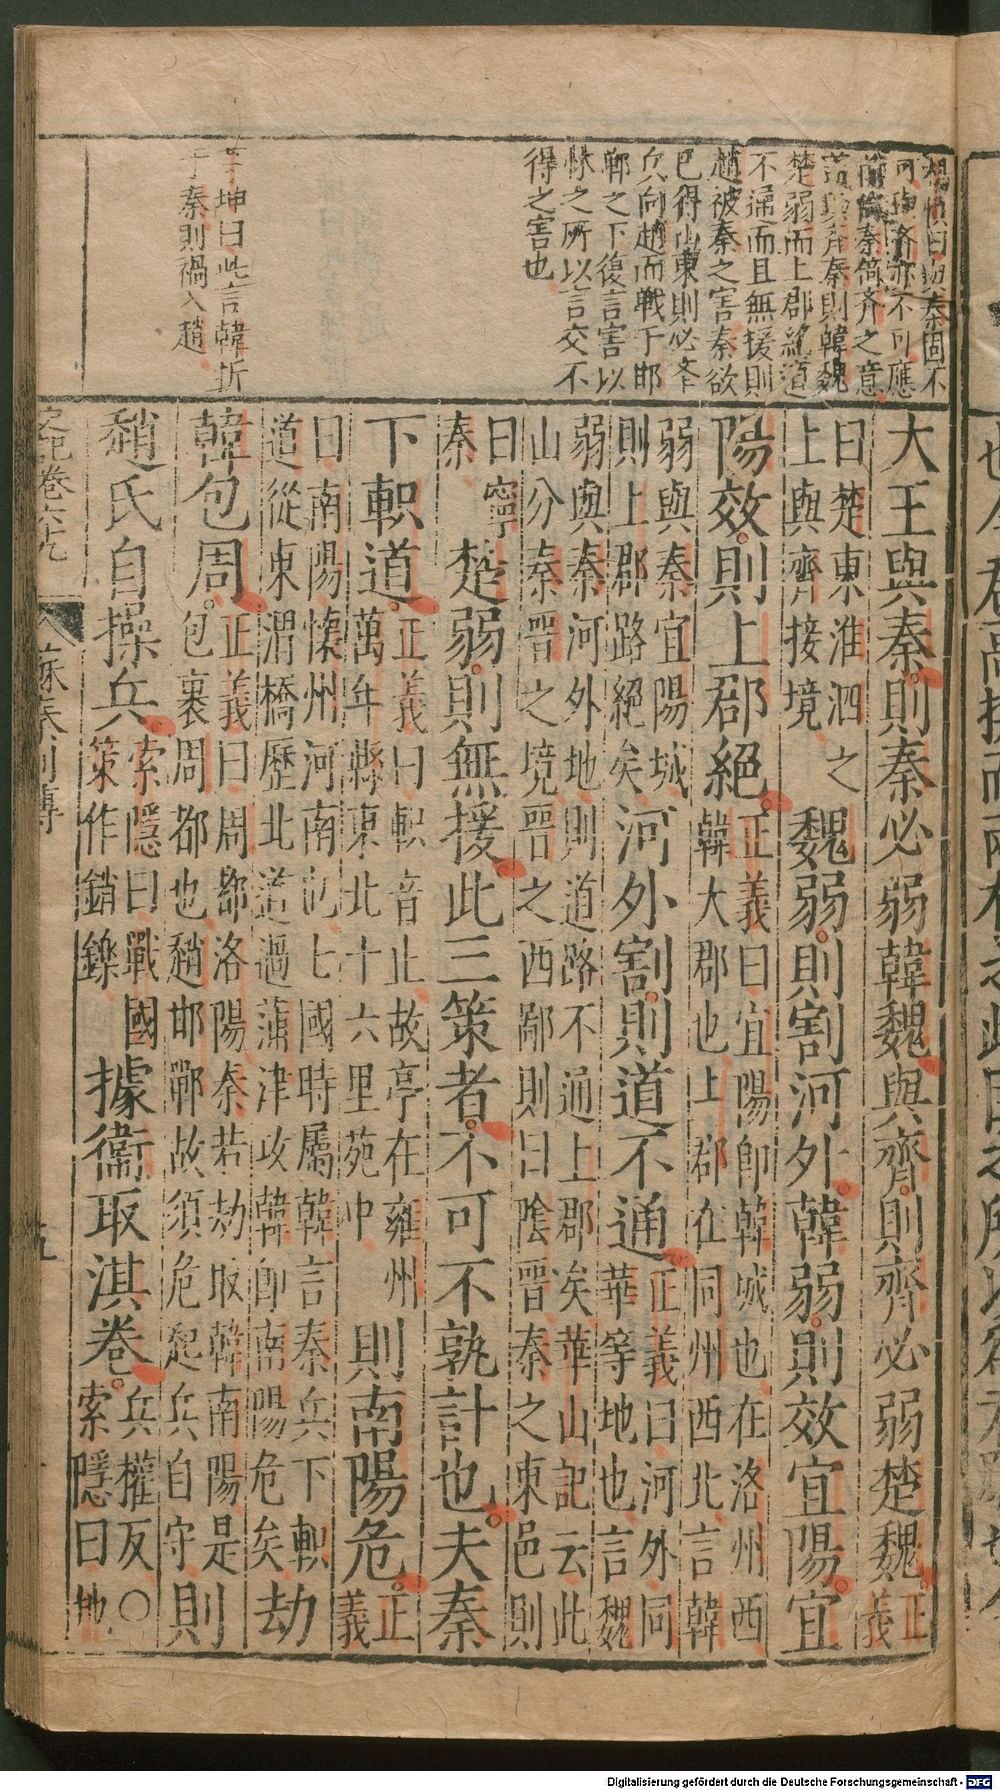 大王與秦則秦必弱韓魏與齊則齊必弱楚魏正義
曰楚東淮泗之上與齊接境魏弱則割河外韓弱則效宜陽宜
陽效則上郡絕正義曰宜陽即韓城也在洛州西韓大郡也上郡在同州西北言韓
弱與秦宜陽城則上郡路絕矣河外割則道不通正義曰河外同華等地也言魏
弱與秦河外地則道路不通上郡矣華山記云此山分秦晉之境晉之西鄙則曰陰晉秦之東邑則
曰寧秦楚弱則無援此三策者不可不孰計也夫秦
下軹道正義曰軹音止故亭在雍州萬年縣東北十六里苑中則南陽危正義
曰南陽懷州河南也七國時屬韓言秦兵下軹道從東渭橋歷北道過蒲津攻韓即南陽危矣劫
韓包周正義曰周都洛陽秦若劫取韓南陽是包裹周都也趙邯鄲故須危起兵自守則
趙氏自操兵索隱曰戰國策作銷鑠據衞取淇卷兵權反○索隱曰地
史記卷六九
蘇秦列傳
十九
不通而且無援則
趙被秦之害秦欲
已得山東則必舉
兵向趙而戰于邯
鄲之下復言害以
怵之所以言交不
得之害也
坤曰此言韓折
于秦則禍入趙
Digitalisierung gefördert durch die Deutsche Forschungsgemeinschaft - DFG